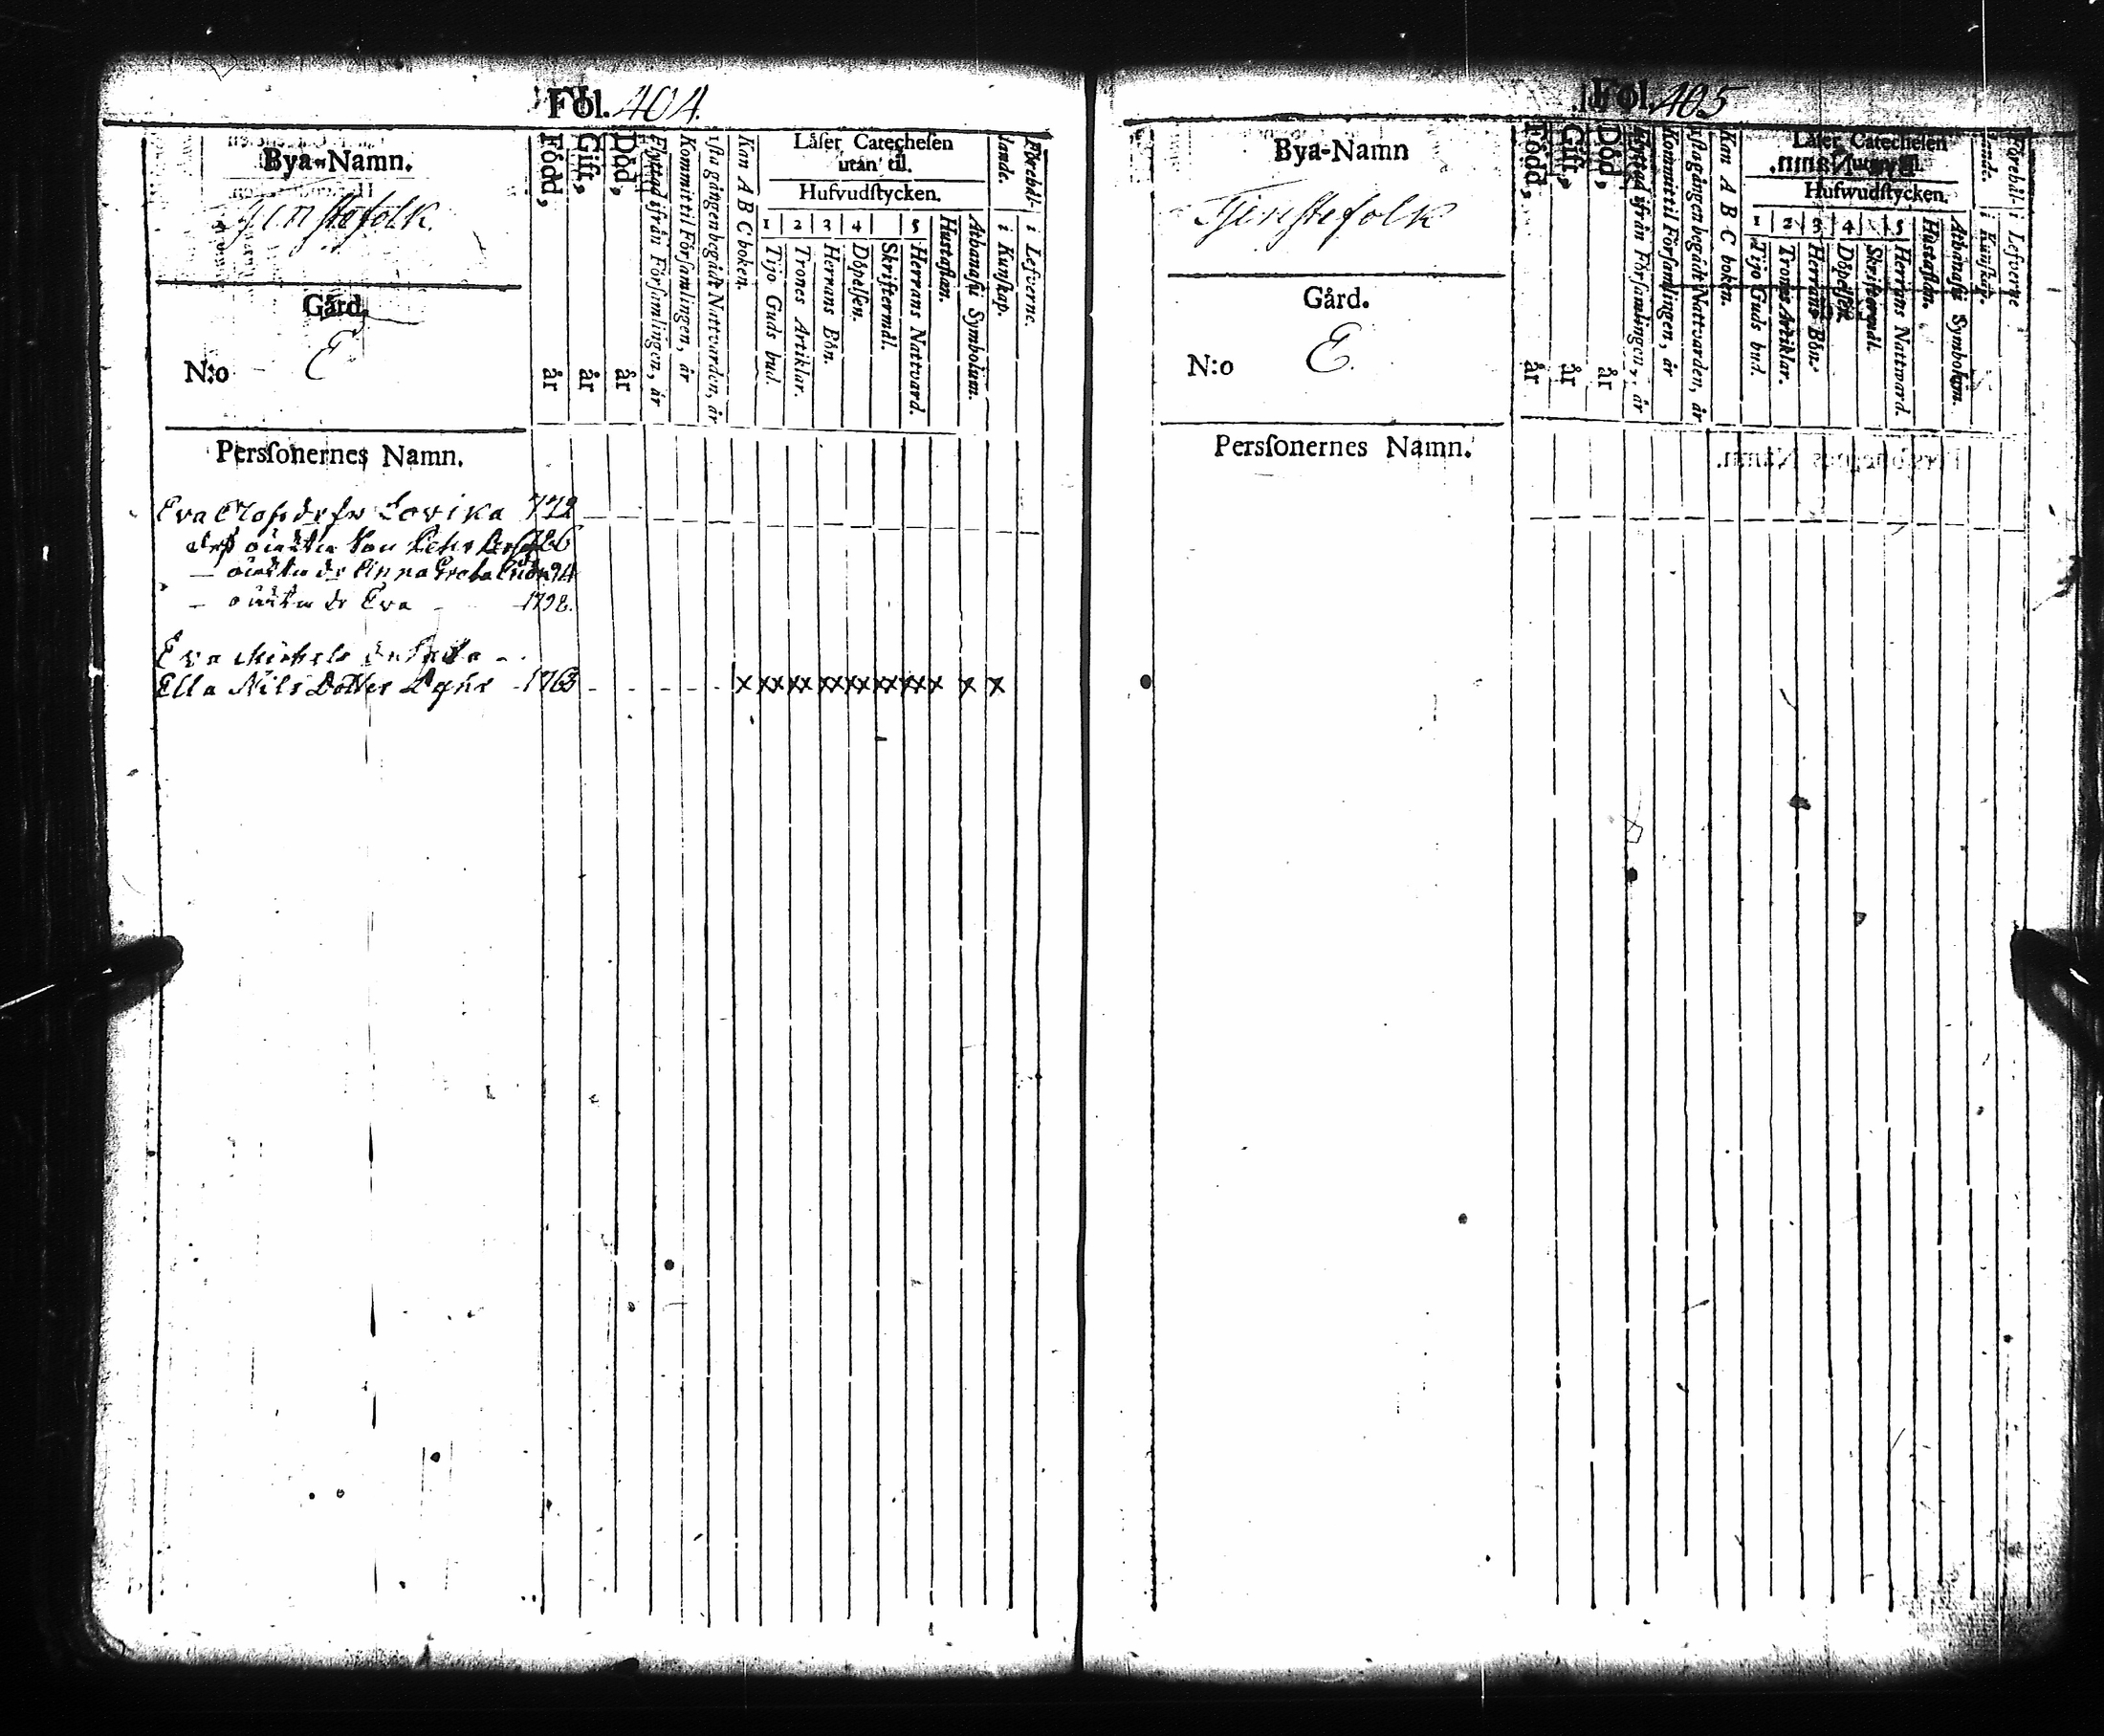 Fol. 404.
Bya-Namn.
Tjenstefolk.
Gård.
N:o E
Född, år
Gift, år
Död, år
Flyttad ifrån Församlingen, år
Kommit til Församlingen, år
1sta gången begådt Nattvarden, år
Kan A B C boken.
Läser Catechesen
utan til.
Hufvudstycken.
1 2 3 4 5
Tijo Guds bud.
Trones Artiklar.
Herrans Bön.
Döpelsen.
Skriftermål.
Herrans Nattvard.
Hustaflan.
Athanasii Symbolum.
Förehållande. i Kunskap.
i Lefverne.
Personernes Namn.
Eva Lovika 772
oächta Son Pehr
oächta dr
— oächta dr Eva 1798.
Eva Michels
Ella Nils Dotter 1763 - - - - - x xx xx xx xx xx xxx x x
Fol. 405
Bya-Namn
Tjenstefolk
Gård.
N:o E.
Född, år
Gift, år
Död, år
Flyttad ifrån Församlingen, år
Kommit til Församlingen, år
1sta gången begådt Nattvarden, år
Kan A B C boken.
Läser Catechesen
Hufwudstycken.
1 2 3 4 5
Tijo Guds bud.
Trones Artiklar.
Herrans Bön.
Döpelsen.
Skriftermål.
Herrans Nattward.
Hustaflan.
Athanasii Symbolum.
Förehållande. i Kunskap.
i Lefverne
Personernes Namn.